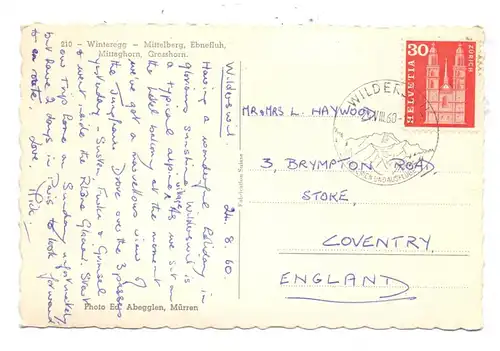 210 - Winteregg - Mittelberg, Ebnefluh,
Mittaghorn, Grosshorn.
Wilderswil. 24.8.60.
Having a wonderful holiday in
glorious sunshine. Wilderswil is
a typical alpine village. As we sit on
the hotel balcony at the moment
we've got a marvellous view of
the Jungfrau. Drove over the 3 passes
yesterday - Susten, Furka & Grimsel
& went inside the Rhone Glacier. Start
our trip home on Sunday unfortunately
but have 2 days in Paris to look forward
to en route. Love,
Photo Ed. Abegglen, Mürren
30
ZÜRICH
HELVETIA
WILDERSWIL
VIII.60
MR & MRS L. HAYWOOD,
3, BRYMPTON ROAD,
STOKE,
COVENTRY
ENGLAND